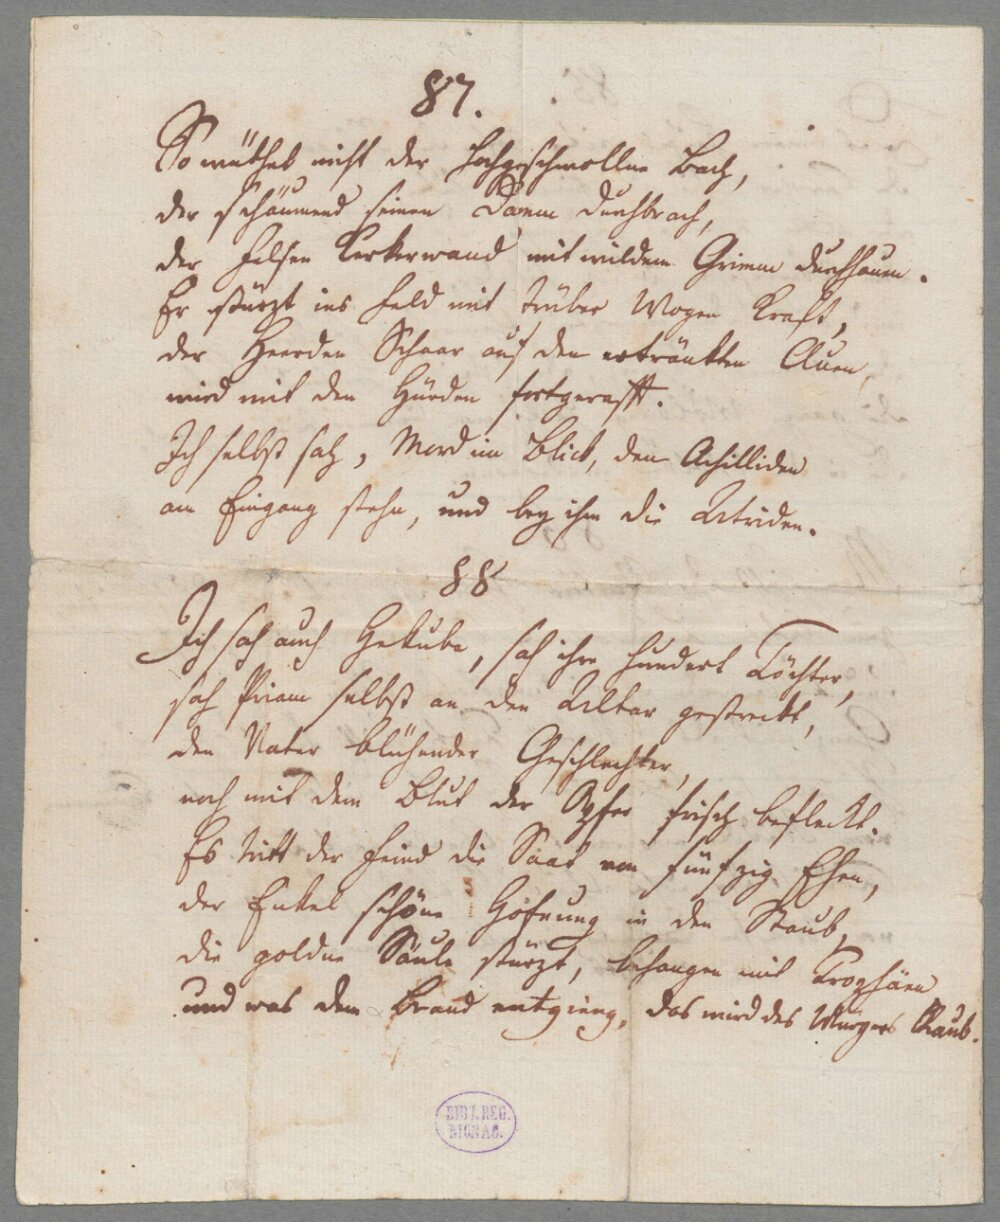 87.
So wüthet nicht der hochgeschwollne Bach,
der schäumend seinen Damm durchbrach,
der Felsen Kerkerwand mit wildem Grimm durchhauen.
Er stürzt ins Feld mit trüber Wogen Kraft,
der Heerden Schaar auf den ertränkten Auen,
wird mit den Hürden fortgerafft.
Ich selbst sah, Mord im Blick, den Achilliden
am Eingang stehn, und bey ihm die Atriden.
88
Ich sah auch Hekuba, sah ihre hundert Töchter,
sah Priam selbst an den Altar gestreckt,
den Vater blühender Geschlechter,
noch mit dem Blut der Opfer frisch befleckt.
Es tritt der Feind die Saat von fünfzig Ehen,
der Enkel schöne Hofnung in den Staub,
die goldne Säule stürzt, behangen mit Trophäen
und was dem Brand entgieng, das wird des Würgers Raub.
BIBL. REG.